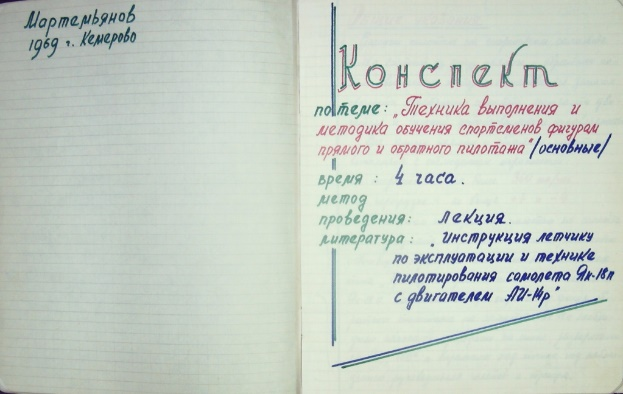 Мартемьянов
1969 г. Кемерово
Конспект
по теме: „Техника выполнения и
методика обучения спортсменов фигурам
прямого и обратного пилотажа" /основные/
время: 4 часа.
метод
проведения: лекция.
литература: „Инструкция летчику
по эксплуатации и технике
пилотирования самолета Як-18п
с двигателем АИ-14р"